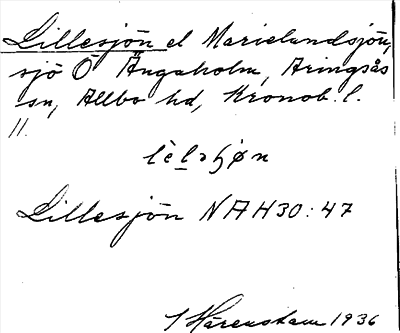 Lillesjön el Marielundsjön,
sjö Ö Ängaholm, Aringsås
sn, Allbo hd, Kronob. l.
11.
Lillesjön NAH30:47
J Härenstam 1936